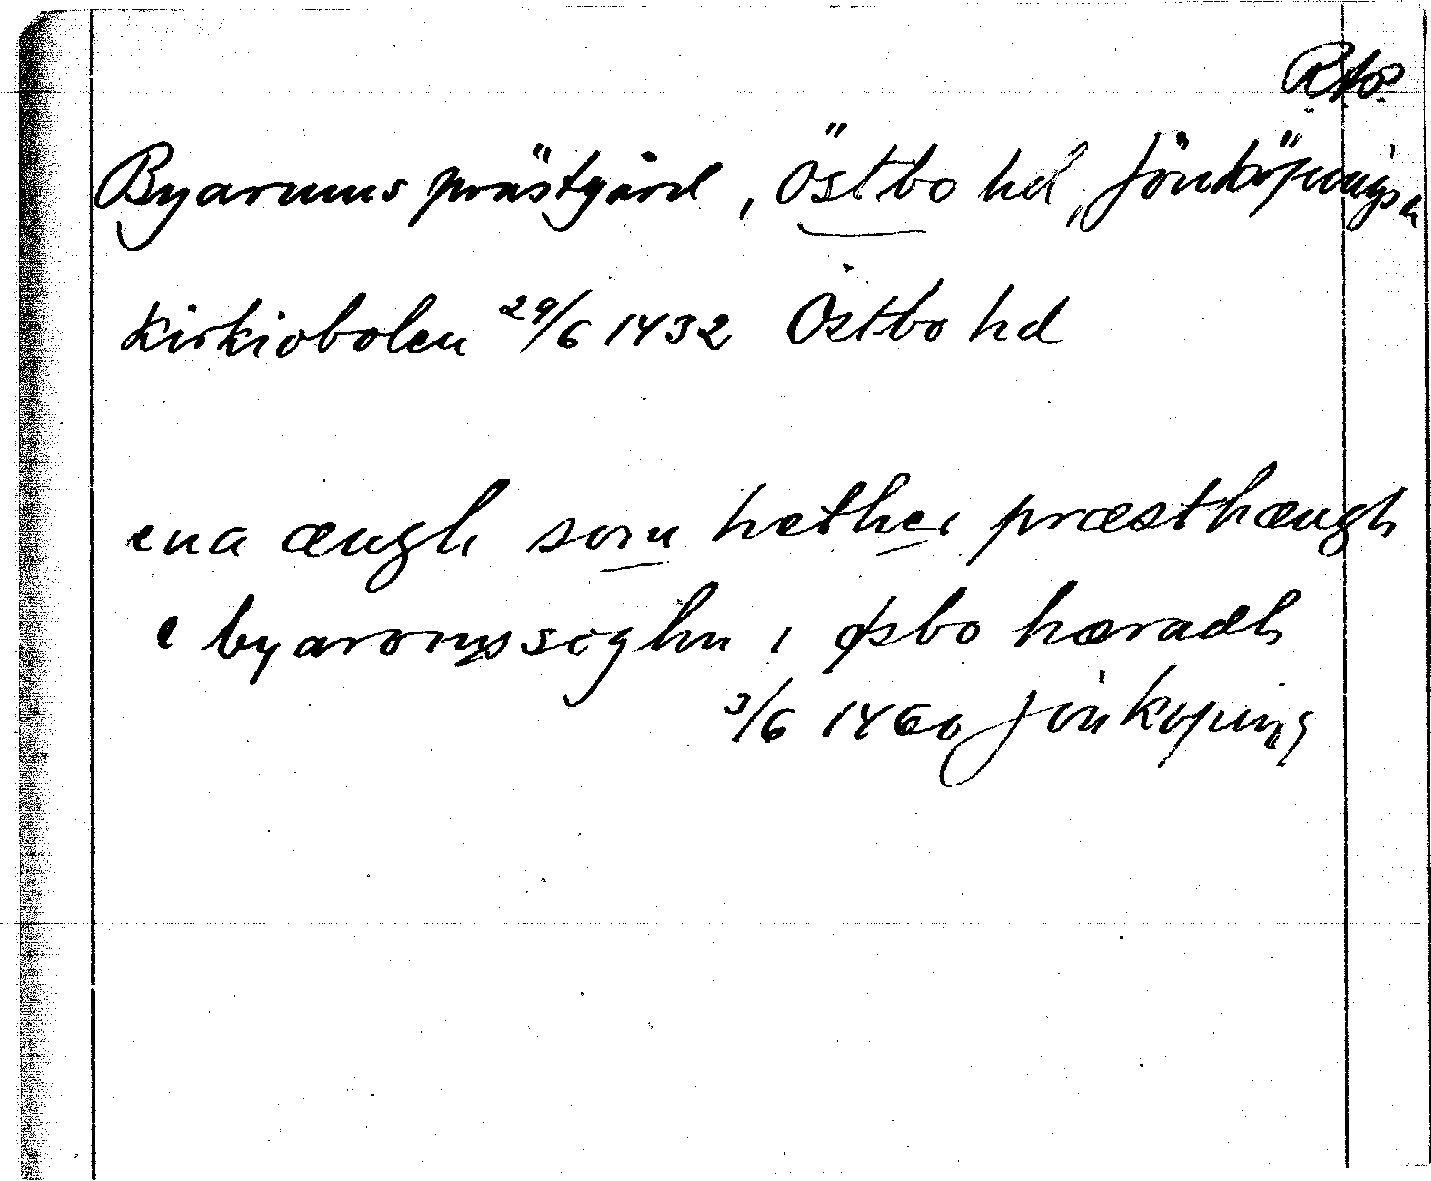 RAp
Byarums prästgård, Östbo hd, Jönköpings l
kirkiobolen 29/6 1432 Östbo hd
ena ængh som hether præsthængh
i byaromssoghn i øsbo hæradh
3/6 1460 Jönköping